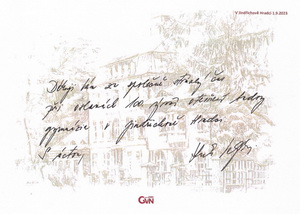 V Jindřichově Hradci 1.9.2015
Děkuji Vám za společně strávený čas
při oslavách 100. výročí otevření budovy
gymnázia v Jindřichově Hradci
S úctou
GVN